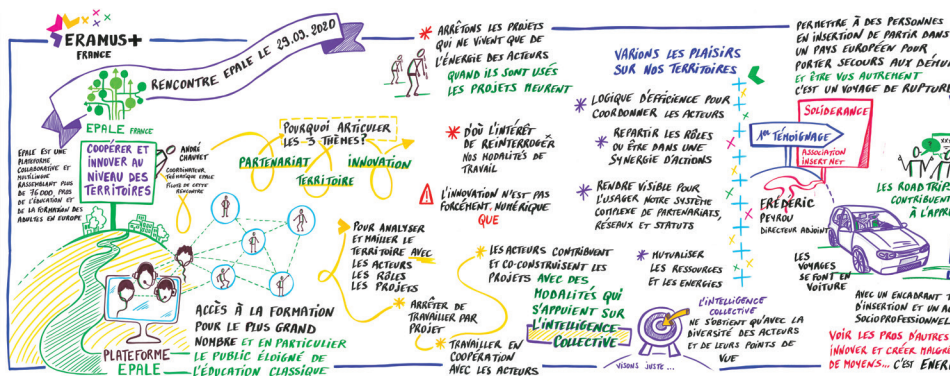 ERAMUS+
FRANCE
RENCONTRE EPALE LE 29.09.2020
EPALE FRANCE
EPALE EST UNE
PLATEFORME
COLLABORATIVE ET
MULTILINGUE
RASSEMBLANT PLUS
DE 76000 PROS
DE L'ÉDUCATION ET
DE LA FORMATION DES
ADULTES EN EUROPE
COOPÉRER ET
INNOVER AU
NIVEAU DES
TERRITOIRES
ANDRÉ
CHAUVET
COORDINATEUR
THÉMATIQUE EPALE
PILOTE DE CETTE
RENCONTRE
PLATEFORME
EPALE
POURQUOI ARTICULER
LES 3 THÈMES?
PARTENARIAT INNOVATION
TERRITOIRE
ACCÈS À LA FORMATION
POUR LE PLUS GRAND
NOMBRE ET EN PARTICULIER
LE PUBLIC ÉLOIGNÉ DE
L'ÉDUCATION CLASSIQUE
POUR ANALYSER
ET MAILLER LE
TERRITOIRE AVEC
LES ACTEURS
LES RÔLES
LES PROJETS
ARRÊTER DE
TRAVAILLER PAR
PROJET
TRAVAILLER EN
COOPÉRATION
AVEC LES ACTEURS
ARRÊTONS LES PROJETS
QUI NE VIVENT QUE DE
L'ÉNERGIE DES ACTEURS
QUAND ILS SONT USÉS
LES PROJETS MEURENT
D'OÙ L'INTÉRÊT
DE REINTERROGER
NOS MODALITÉS DE
TRAVAIL
L'INNOVATION N'EST PAS
FORCÉMENT NUMÉRIQUE
QUE
LES ACTEURS CONTRIBUENT
ET CO-CONSTRUISENT LES
PROJETS AVEC DES
MODALITÉS QUI
S'APPUIENT SUR
L'INTELLIGENCE
COLLECTIVE
VARIONS LES PLAISIRS
SUR NOS TERRITOIRES
LOGIQUE D'EFFICIENCE POUR
COORDONNER LES ACTEURS
REPARTIR LES RÔLES
OU ÊTRE DANS UNE
SYNERGIE D'ACTIONS
RENDRE VISIBLE POUR
L'USAGER NOTRE SYSTÈME
COMPLEXE DE PARTENARIATS,
RÉSEAUX ET STATUTS
MUTUALISER
LES RESSOURCES
ET LES ENERGIES
L'INTELLIGENCE
COLLECTIVE
NE S'OBTIENT QU'AVEC LA
DIVERSITÉ DES ACTEURS
ET DE LEURS POINTS DE
VUE
VISONS JUSTE...
PERMETTRE À DES PERSONNES
EN INSERTION DE PARTIR DANS
UN PAYS EUROPÉEN POUR
PORTER SECOURS AUX DÉMUN
ET ÊTRE VUS AUTREMENT
C'EST UN VOYAGE DE RUPTURE
SOLIDERANCE
1ER TÉMOIGNAGE
ASSOCIATION
INSERT NET
FRÉDÉRIC
PEYROU
DIRECTEUR ADJOINT
LES ROAD TRIP
CONTRIBUENT
À L'APP
LES
VOYAGES
SE FONT EN
VOITURE
AVEC UN ENCADRANT T
D'INSERTION ET UN A
SOCIOPROFESSIONNEL
VOIR LES PROS D'AUTRES
INNOVER ET CRÉER MALGRÉ
DE MOYENS... C'EST ENER